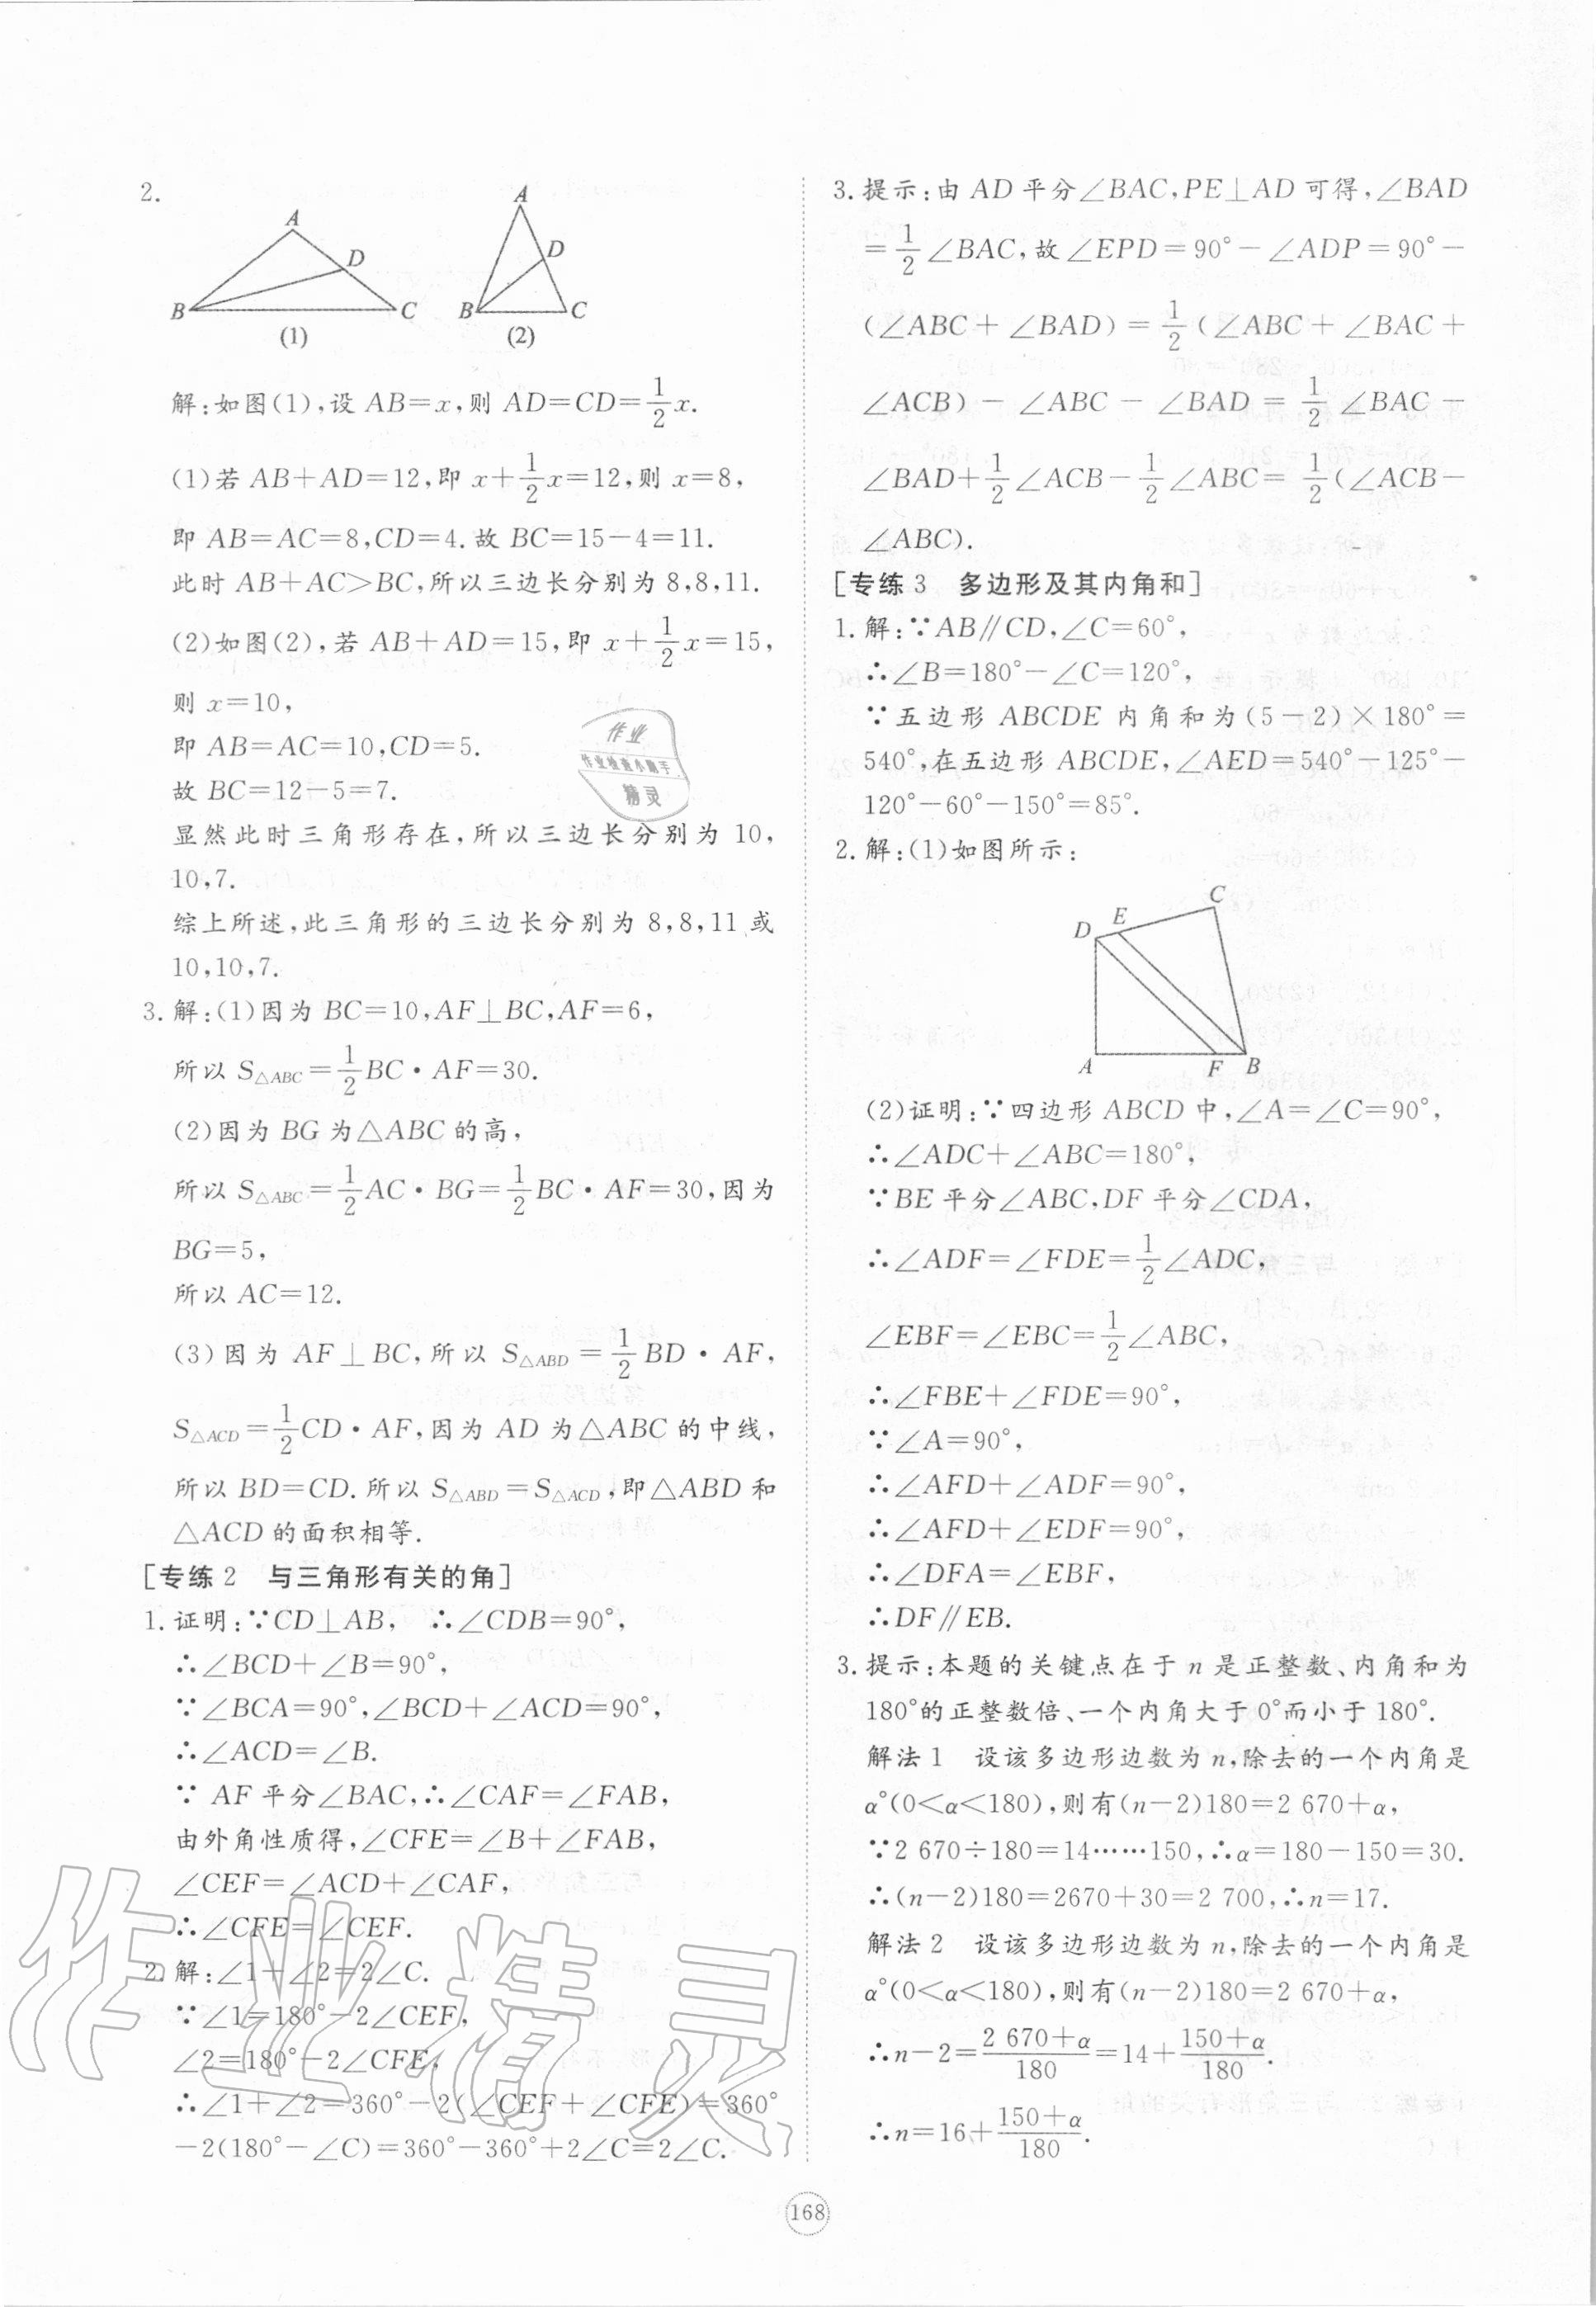 2.
A
D
B
C
(1)
A
D
B
C
(2)
解:如图(1),设 AB=x,则 AD=CD=1/2x.
(1)若 AB+AD=12,即 x+1/2x=12,则 x=8,
即 AB=AC=8,CD=4.故 BC=15-4=11.
此时 AB+AC>BC,所以三边长分别为 8,8,11.
(2)如图(2),若 AB+AD=15,即 x+1/2x=15,
则 x=10,
即 AB=AC=10,CD=5.
故 BC=12-5=7.
显然此时三角形存在,所以三边长分别为 10,
10,7.
综上所述,此三角形的三边长分别为 8,8,11 或
10,10,7.
3.解:(1)因为 BC=10,AF⊥BC,AF=6,
所以 S△ABC=1/2BC·AF=30.
(2)因为 BG 为△ABC 的高,
所以 S△ABC=1/2AC·BG=1/2BC·AF=30,因为
BG=5,
所以 AC=12.
(3)因为 AF⊥BC,所以 S△ABD=1/2BD·AF,
S△ACD=1/2CD·AF,因为 AD 为△ABC 的中线,
所以 BD=CD.所以 S△ABD=S△ACD,即△ABD 和
△ACD 的面积相等.
[专练 2 与三角形有关的角]
1.证明:∵CD⊥AB, ∴∠CDB=90°,
∴∠BCD+∠B=90°,
∵∠BCA=90°,∠BCD+∠ACD=90°,
∴∠ACD=∠B.
∵ AF 平分∠BAC,∴∠CAF=∠FAB,
由外角性质得,∠CFE=∠B+∠FAB,
∠CEF=∠ACD+∠CAF,
∴∠CFE=∠CEF.
2.解:∠1+∠2=2∠C.
∵∠1=180°-2∠CEF,
∠2=180°-2∠CFE,
∴∠1+∠2=360°-2(∠CEF+∠CFE)=360°
-2(180°-∠C)=360°-360°+2∠C=2∠C.
作业
作业检查小助手
精灵
作业精灵
3.提示:由 AD 平分∠BAC,PE⊥AD 可得,∠BAD
=1/2∠BAC,故∠EPD=90°-∠ADP=90°-
(∠ABC+∠BAD)=1/2(∠ABC+∠BAC+
∠ACB)-∠ABC-∠BAD=1/2∠BAC-
∠BAD+1/2∠ACB-1/2∠ABC=1/2(∠ACB-
∠ABC).
[专练 3 多边形及其内角和]
1.解:∵AB∥CD,∠C=60°,
∴∠B=180°-∠C=120°,
∵五边形 ABCDE 内角和为(5-2)×180°=
540°,在五边形 ABCDE,∠AED=540°-125°-
120°-60°-150°=85°.
2.解:(1)如图所示:
C
E
D
A
F
B
(2)证明:∵四边形 ABCD 中,∠A=∠C=90°,
∴∠ADC+∠ABC=180°,
∵BE 平分∠ABC,DF 平分∠CDA,
∴∠ADF=∠FDE=1/2∠ADC,
∠EBF=∠EBC=1/2∠ABC,
∴∠FBE+∠FDE=90°,
∵∠A=90°,
∴∠AFD+∠ADF=90°,
∴∠AFD+∠EDF=90°,
∴∠DFA=∠EBF,
∴DF∥EB.
3.提示:本题的关键点在于 n 是正整数、内角和为
180°的正整数倍、一个内角大于 0°而小于 180°.
解法 1 设该多边形边数为 n,除去的一个内角是
α°(0<α<180),则有(n-2)180=2 670+α,
∵2 670÷180=14……150,∴α=180-150=30.
∴(n-2)180=2670+30=2 700,∴n=17.
解法 2 设该多边形边数为 n,除去的一个内角是
α°(0<α<180),则有(n-2)180=2 670+α,
∴n-2=(2 670+α)/180=14+(150+α)/180.
∴n=16+(150+α)/180.
168